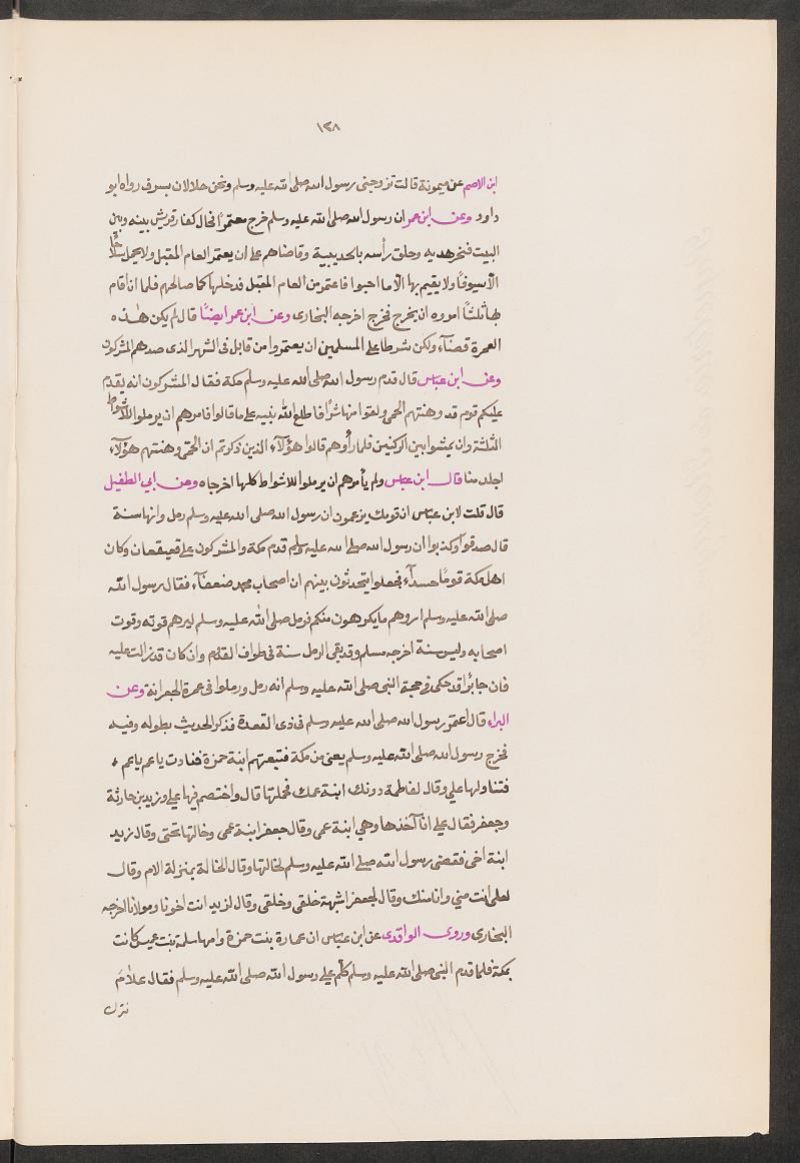 ١٢٨
ابن الاصم عن ميمونة قالت تزوجني رسول الله صلى الله عليه وسلم ونحن حلالان بسرف رواه ابو
داود وعن ابن عمر ان رسول الله صلى الله عليه وسلم خرج معتمرًا فحال كفار قريش بينه وبين
البيت فنحر هديه وحلق رأسه بالحديبية وقاضاهم على ان يعتمر العام المقبل ولا يحمل سلاحًا
الّا سيوفًا ولا يقيم بها الّا ما احبوا فاعتمر من العام المقبل فدخلها كما صالحهم فلما ان اقام
بها ثلثًا امروه ان يخرج فخرج اخرجه البخارى وعن ابن عمر ايضًا قال لم يكن هذه
العمرة قضآء ولكن شرطا على المسلمين ان يعتمروا من قابل فى الشهر الذى صدهم المشركون
وعن ابن عباس قال قدم رسول الله صلى الله عليه وسلم مكة فقال المشركون انه يقدم
عليكم قوم قد وهنتهم الحمى ولقوا منها شرًا فاطلع الله نبيه على ما قالوا فامرهم ان يرملوا الاشواط
الثلثة وان يمشوا بين الركنين فلما رأوهم قالوا هؤلآء الذين ذكرتم ان الحمّى وهنتهم هؤلآء
اجلد منا قال ابن عباس ولم يأمرهم ان يرملوا الاشواط كلها اخرجاه وعن ابي الطفيل
قال قلت لابن عباس ان قومك يزعمون ان رسول الله صلى الله عليه وسلم رمل وانها سنة
قال صدقوا وكذبوا ان رسول الله صلى الله عليه وسلم قدم مكة والمشركون على قعيقعان وكان
اهل مكة قومًا حسدآء فجعلوا يتحدثون بينهم ان اصحاب محمد ضعفآء فقال رسول الله
صلى الله عليه وسلم اروهم ما يكرهون منكم فرمل صلى الله عليه وسلم ليرهم قوته وقوت
اصحابه وليس سنة اخرجه مسلم وقد بقى الرمل سنة فى طواف القدوم وان كان قد زالت عليه
فان جابرا قد حكى فى حجة النبي صلى الله عليه وسلم انه رمل ورملوا فى عمرة الجعرانة وعن
البراء قال اعتمر رسول الله صلى الله عليه وسلم فى ذى القعدة فذكر الحديث بطوله وفيه
فخرج رسول الله صلى الله عليه وسلم يعنى من مكة فتبعتهم ابنة حمزة فنادت يا عم يا عم
فتناولها علي وقال لفاطمة دونك ابنة عمك فحملتها قال واختصم فيها علي وزيد بن حارثة
وجعفر فقال علي انا آخذها وهي ابنة عمى وقال جعفر ابنة عمى وخالتها تحتى وقال زيد
ابنة اخى فقضى رسول الله صلى الله عليه وسلم لخالتها وقال الخالة بمنزلة الام وقال
لعلى انت مني وانا منك وقال لجعفر اشبهت خلقى وخلقى وقال لزيد انت اخونا ومولانا اخرجه
البخارى وروى الواقدى عن ابن عباس ان عمارة بنت حمزة وامها سلمة بنت عميس كانت
بمكة فلما قدم النبى صلى الله عليه وسلم كلّم علي رسول الله صلى الله عليه وسلم فقال علامَ
نترك